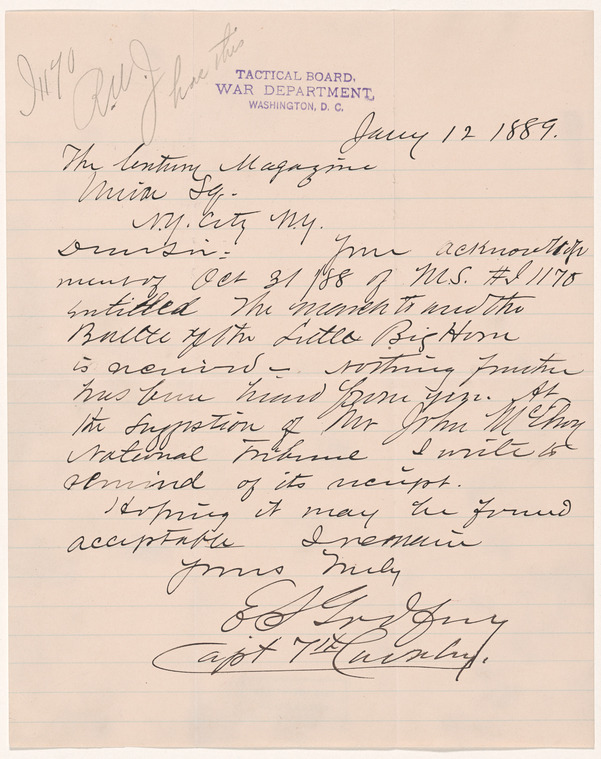 I1170
R.U.J. has this
TACTICAL BOARD,
WAR DEPARTMENT,
WASHINGTON, D. C.
Jany 12 1889.
The Century Magazine
Union Sq.
N.Y. City N.Y.
Dear Sir:- Your acknowledge
ment of Oct 31 /88 of M.S. #I1170
entitled The march to and the
Battle of the Little Big Horn
is received - Nothing further
has been heard from you. At
the suggestion of Mr John McElroy
National Tribune I write to
remind of its receipt.
Hoping it may be found
acceptable I remain
Yours Truly
E S Godfrey
Capt 7th Cavalry.